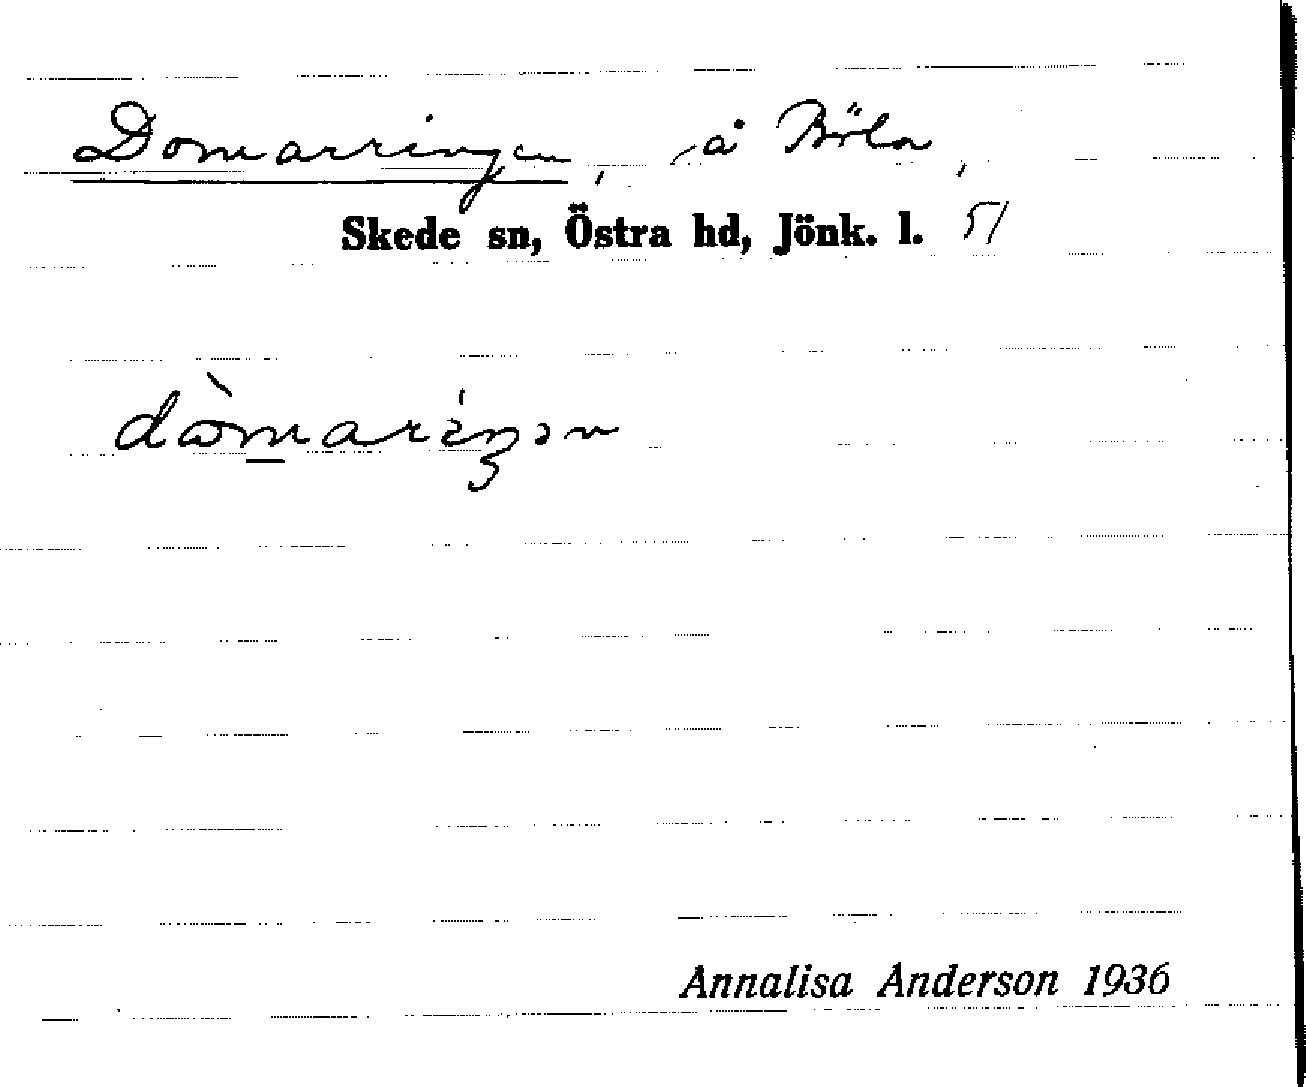 Domarringen, å Böla,
Skede sn, Östra hd, Jönk. l. 51
dòmariŋən
Annalisa Anderson 1936